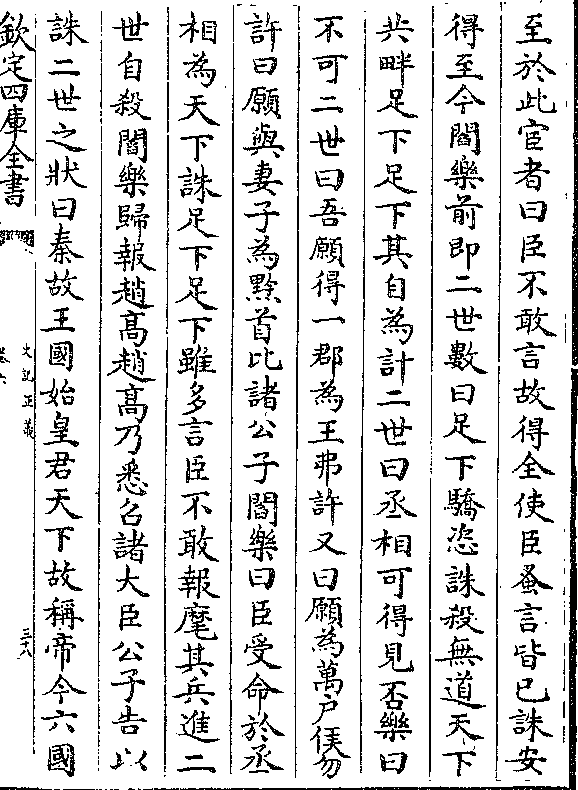 至於此宦者曰臣不敢言故得全使臣蚤言皆已誅安
得至今閻樂前即二世數曰足下驕恣誅殺無道天下
共畔足下足下其自為計二世曰丞相可得見否樂曰
不可二世曰吾願得一郡為王弗許又曰願為萬户侯勿
許曰願與妻子為黔首比諸公子閻樂曰臣受命於丞
相為天下誅足下足下雖多言臣不敢報麾其兵進二
世自殺閻樂歸報趙髙趙髙乃悉召諸大臣公子告以
誅二世之狀曰秦故王國始皇君天下故稱帝今六國
欽定四庫全書
史記正義
卷六
三十八